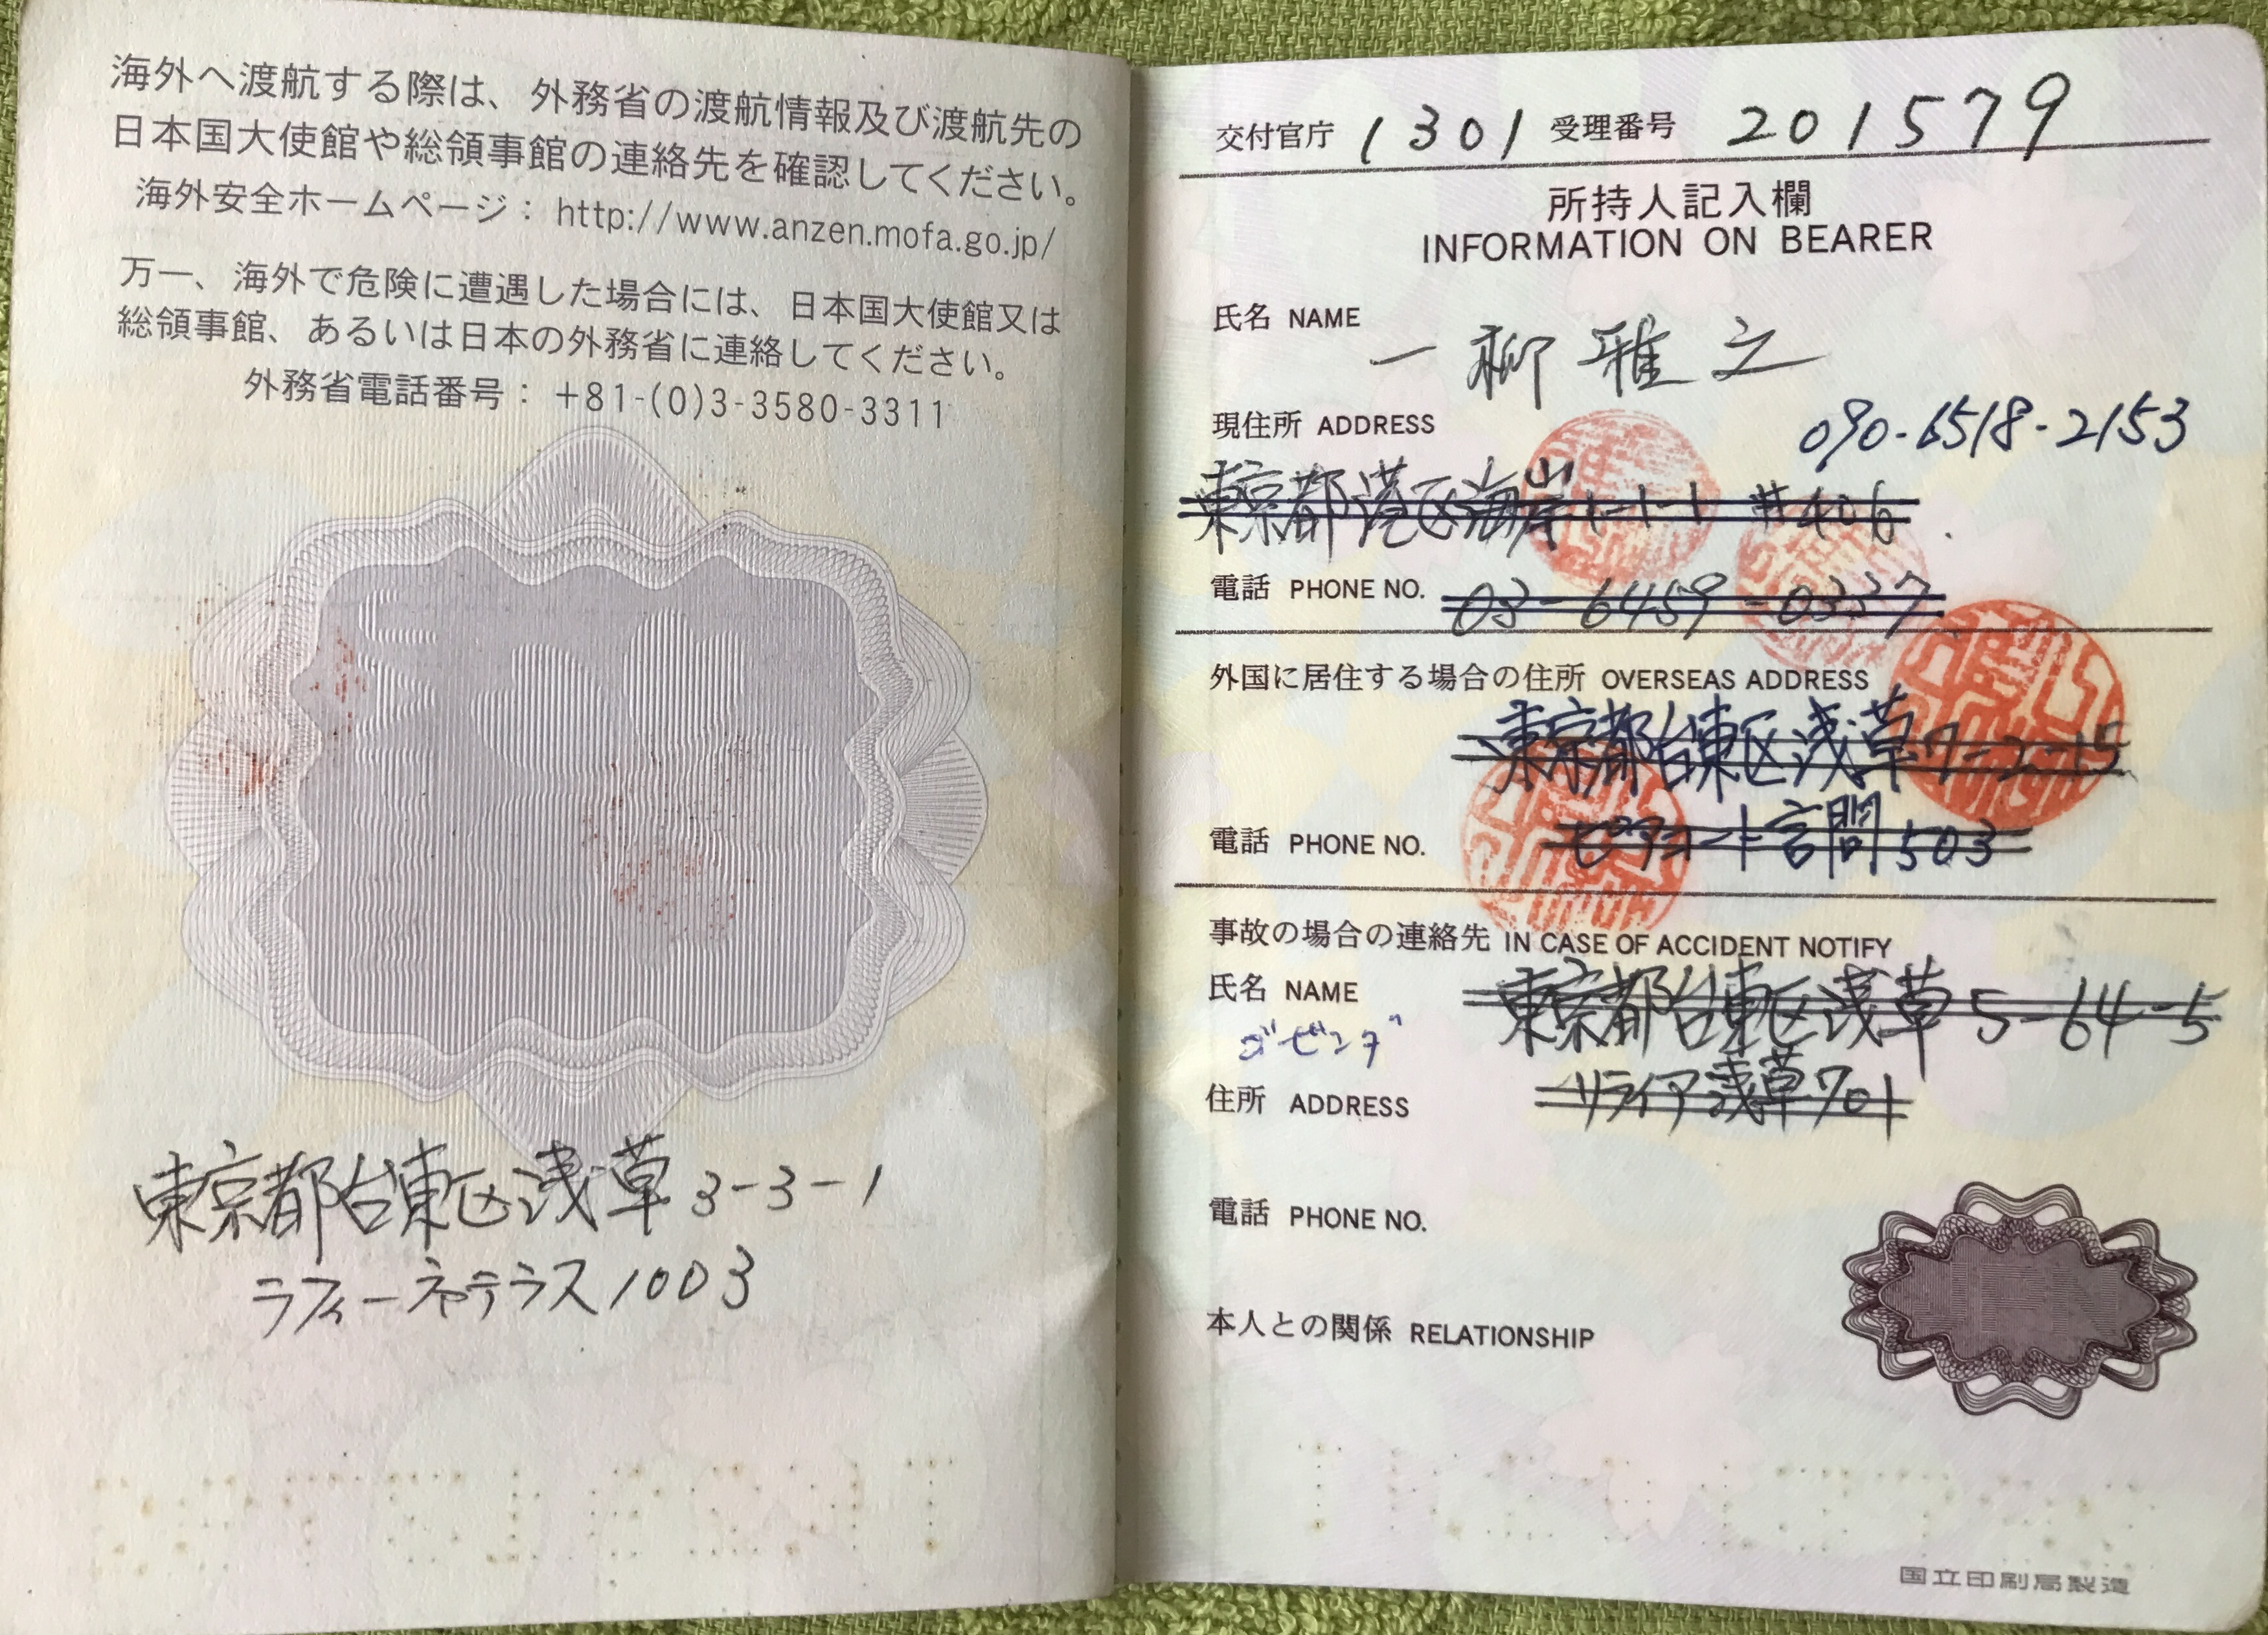 海外へ渡航する際は、外務省の渡航情報及び渡航先の
日本国大使館や総領事館の連絡先を確認してください。
海外安全ホームページ： http://www.anzen.mofa.go.jp/
万一、海外で危険に遭遇した場合には、日本国大使館又は
総領事館、あるいは日本の外務省に連絡してください。
外務省電話番号： +81-(0)3-3580-3311
東京都台東区浅草3-3-1
ラフィーネテラス1003
交付官庁 1301 受理番号 201579
所持人記入欄
INFORMATION ON BEARER
氏名 NAME
一柳雅之
現住所 ADDRESS
090-6518-2153
東京都港区海岸1-1-1 #406
電話 PHONE NO. 03-6459-0337
外国に居住する場合の住所 OVERSEAS ADDRESS
東京都台東区浅草7-2-15
電話 PHONE NO. 言問503
事故の場合の連絡先 IN CASE OF ACCIDENT NOTIFY
氏名 NAME
東京都台東区浅草5-64-5
住所 ADDRESS
リライア浅草701
電話 PHONE NO.
本人との関係 RELATIONSHIP
国立印刷局製造